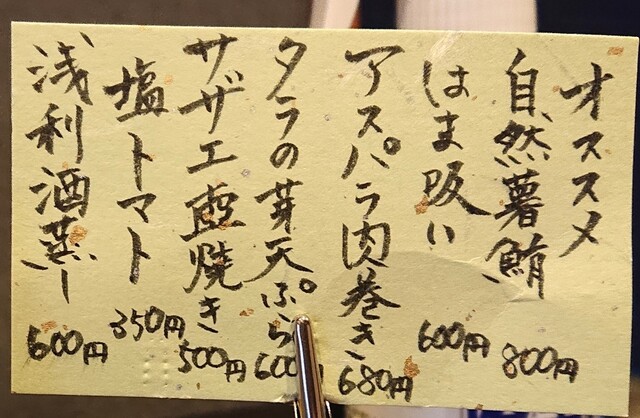 オススメ
自然薯鮪 800円
はま吸い 600円
アスパラ肉巻き 680円
タラの芽天ぷら 600円
サザエ壺焼き 500円
塩トマト 350円
浅利酒蒸し 600円